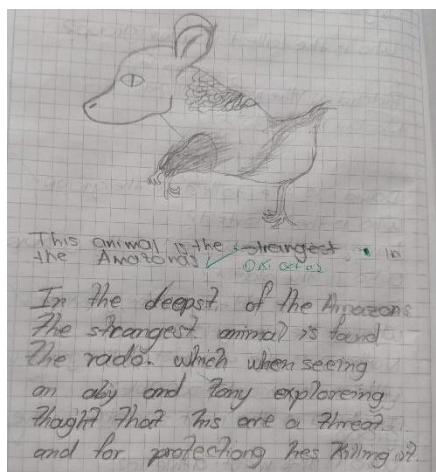 This animal is the strangest in
the Amazonas
In the deepst of the Amazons
the strangest animal is found
the rado. which when seeing
an aby and tony exploreing
thaght that his are a threat.
and for protectiong hes killing it.